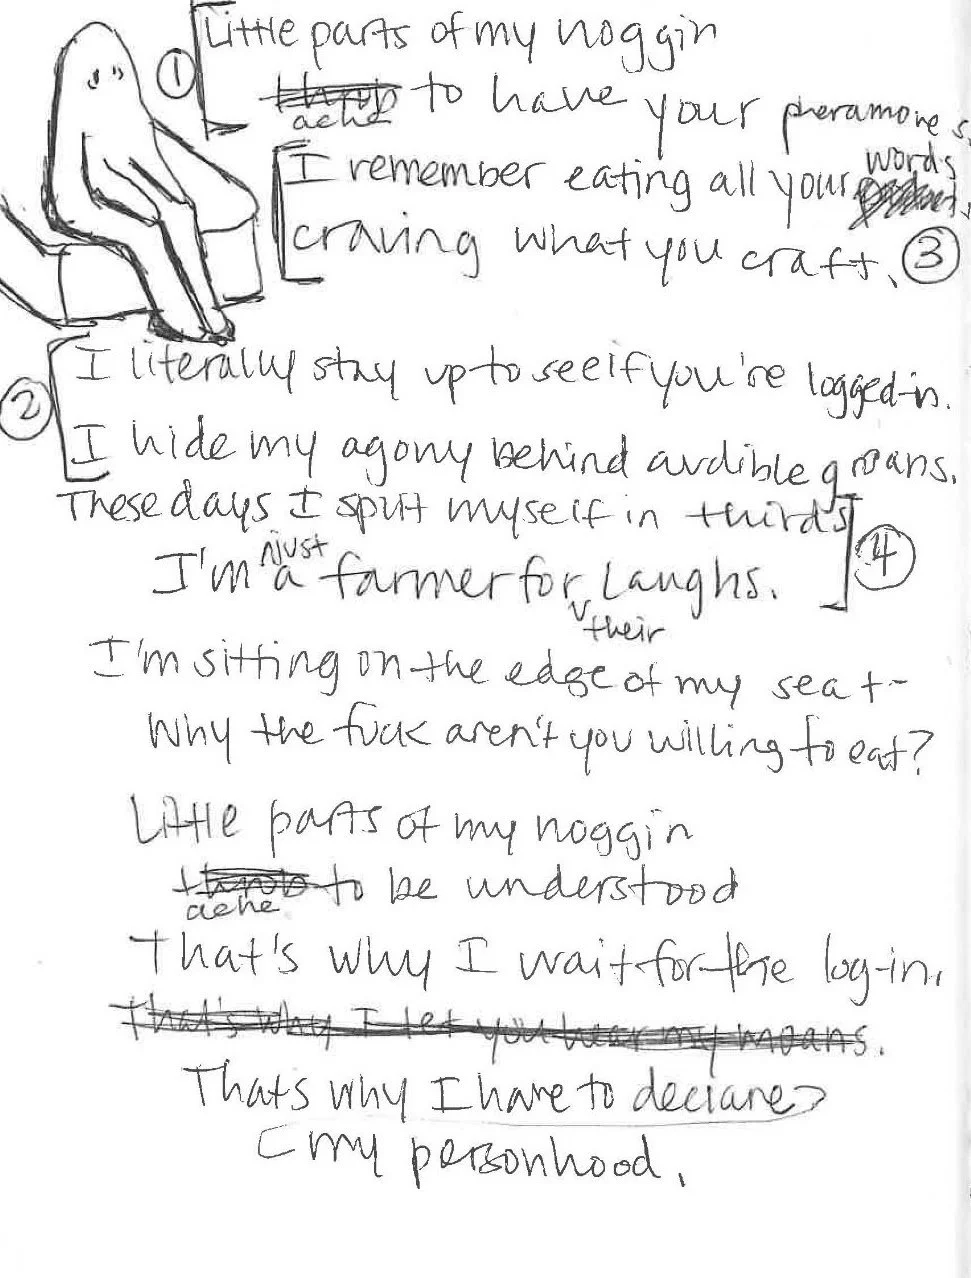 ① Little parts of my noggin
throb to have your pheramones.
ache
I remember eating all your words
craving what you craft. ③
② I literally stay up to see if you're logged-in.
I hide my agony behind audible groans.
These days I split myself in thirds
I'm just a farmer for their laughs. ④
I'm sitting on the edge of my seat-
Why the fuck aren't you willing to eat?
Little parts of my noggin
throb to be understood
ache
That's why I wait for the log-in.
That's why I let you hear my moans.
Thats why I have to declare
my personhood.